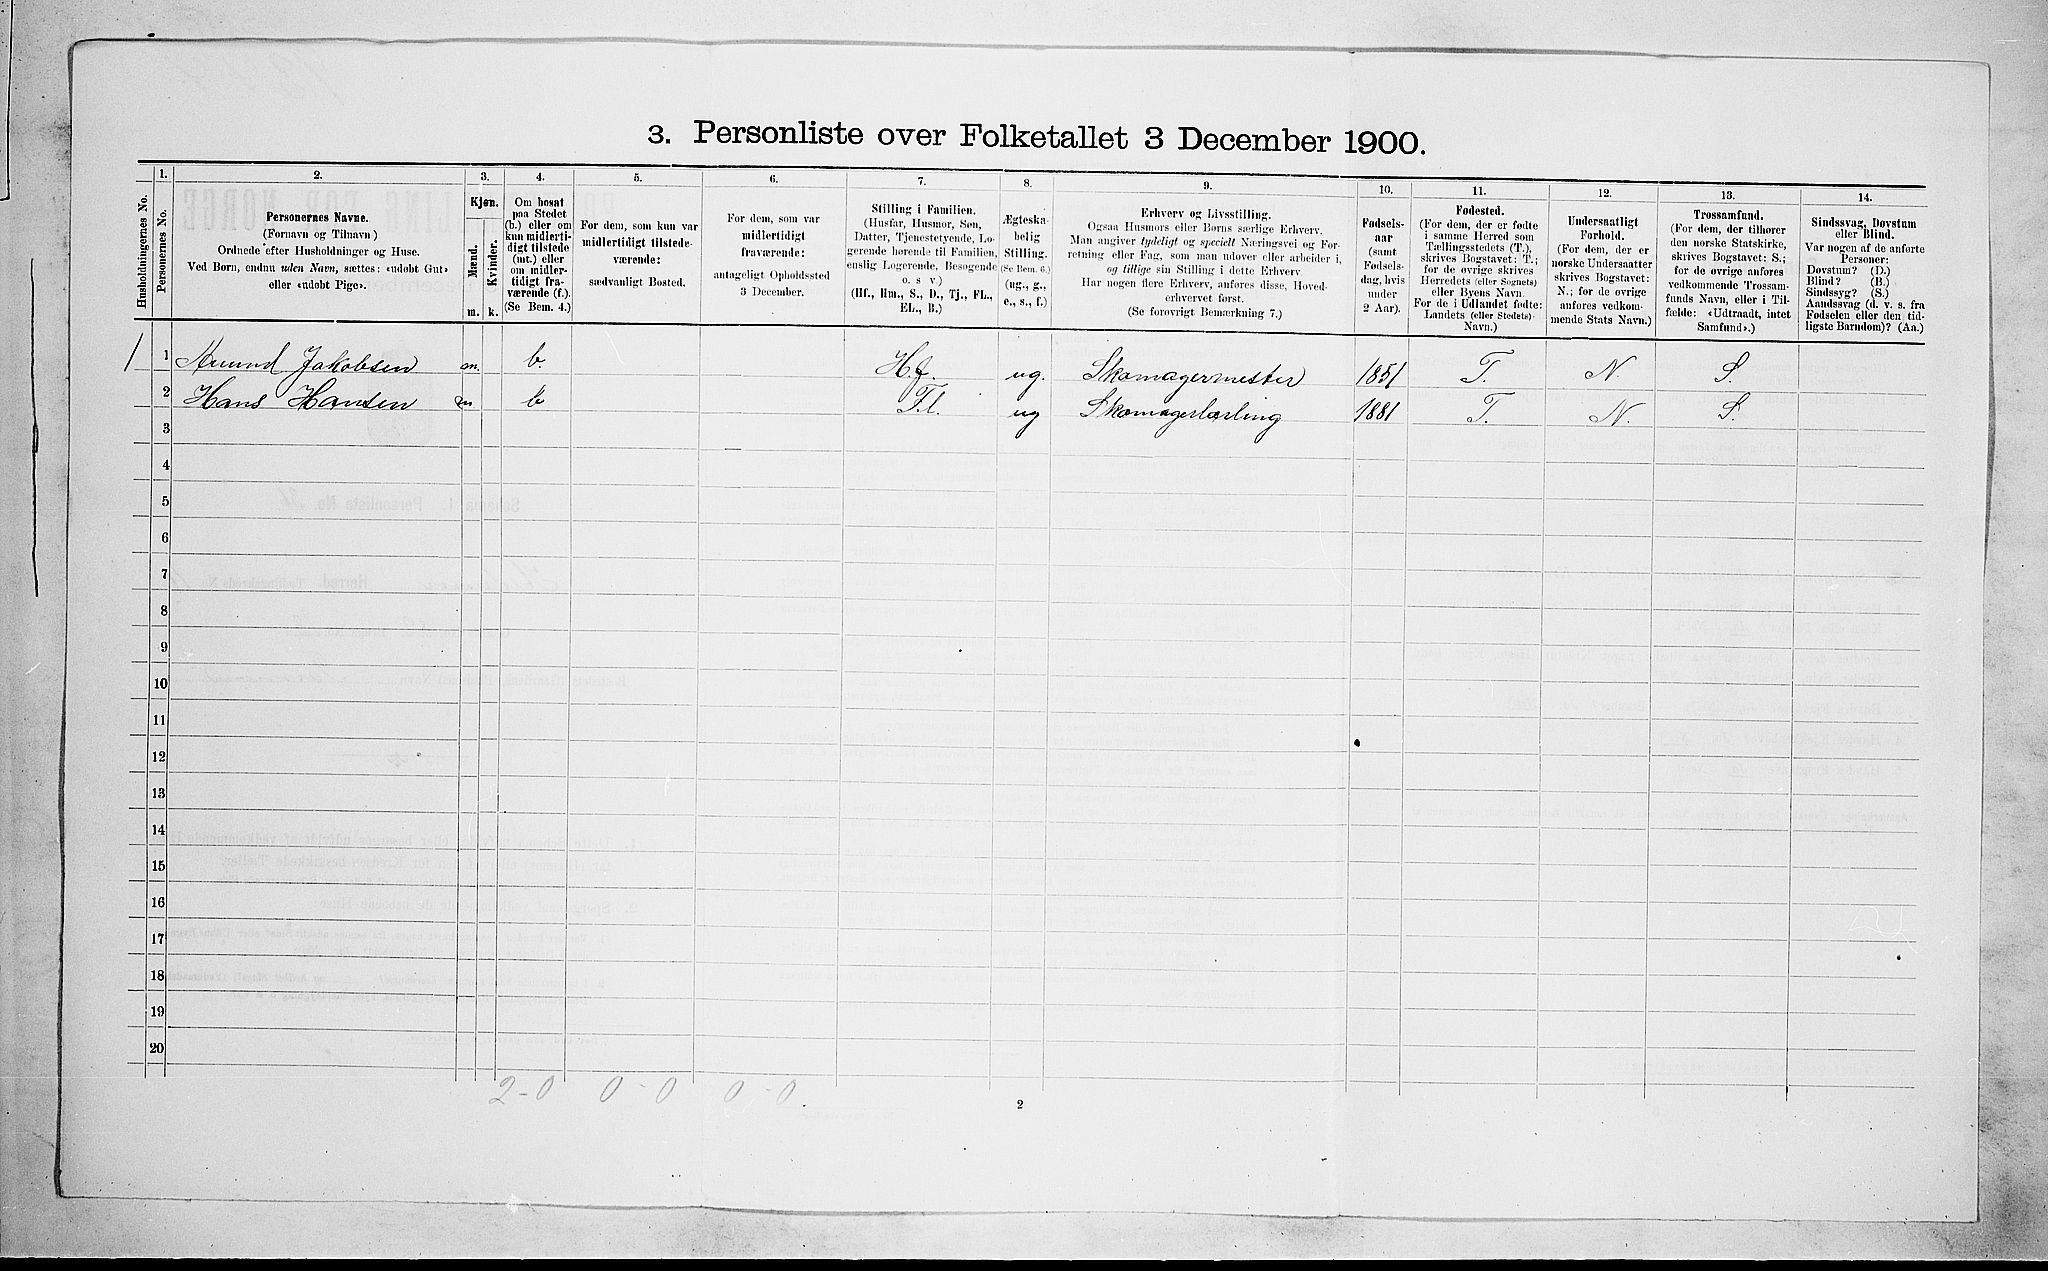 3. Personliste over Folketallet 3 December 1900.
1. 2. 3. 4. 5. 6. 7. 8. 9. 10. 11. 12. 13. 14.
Husholdningernes No.
Personernes No.
Personernes Navne.
(Fornavn og Tilnavn)
Ordnede efter Husholdninger og Huse.
Ved Børn, endnu uden Navn, sættes: «udøbt Gut»
eller «udøbt Pige».
Kjøn.
Mænd.
Kvinder.
m. k.
Om bosat
paa Stedet
(b.) eller om
kun midlerti-
digt tilstede
(mt.) eller
om midler-
tidigt fra-
værende (f.).
(Se Bem. 4.)
For dem, som kun var
midlertidigt tilstede-
værende:
sædvanligt Bosted.
For dem, som var
midlertidigt
fraværende:
antageligt Opholdssted
3 December.
Stilling i Familien.
(Husfar, Husmor, Søn,
Datter, Tjenestetyende, Lo-
gerende hørende til Familien,
enslig Logerende, Besøgende
o. s v.)
(Hf., Hm., S., D., Tj., FL.,
EL., B.)
Ægteska-
belig
Stilling.
(Se Bem. 6.)
(ug., g.,
e., s., f.)
Erhverv og Livsstilling.
Ogsaa Husmors eller Børns særlige Erhverv.
Man angiver tydeligt og specielt Næringsvei og For-
retning eller Fag, som man udøver eller arbeider i,
og tillige sin Stilling i dette Erhverv.
Har nogen flere Erhverv, anføres disse, Hoved-
erhvervet først.
(Se forøvrigt Bemærkning 7.)
Fødsels-
aar
(samt
Fødsels-
dag, hvis
under
2 Aar).
Fødested.
(For dem, der er fødte
i samme Herred som
Tællingsstedets (T.),
skrives Bogstavet: T.;
for de øvrige skrives
Herredets (eller Sognets)
eller Byens Navn.
For de i Udlandet fødte:
Landets (eller Stedets)
Navn.)
Undersaatligt
Forhold.
(For dem, der er
norske Undersaatter
skrives Bogstavet:
N.; for de øvrige
anføres vedkom-
mende Stats Navn.)
Trossamfund.
(For dem, der tilhører
den norske Statskirke,
skrives Bogstavet: S.;
for de øvrige anføres
vedkommende Trossam-
funds Navn, eller i Til-
fælde: «Udtraadt, intet
Samfund».)
Sindssvag, Døvstum
eller Blind.
Var nogen af de anførte
Personer:
Døvstum? (D.)
Blind? (B.)
Sindssyg? (S.)
Aandssvag (d. v. s. fra
Fødselen eller den tid-
ligste Barndom)? (Aa.)
1 1 Amund Jakobsen m. b. Hf. ug. Skomagermester 1851 T. N. S.
2 Hans Hansen m b Fl. ug Skomagerlærling 1881 T. N. S.
3
4
5
6
7
8
9
10
11
12
13
14
15
16
17
18
19
20
2-0 0-0 0-0.
2